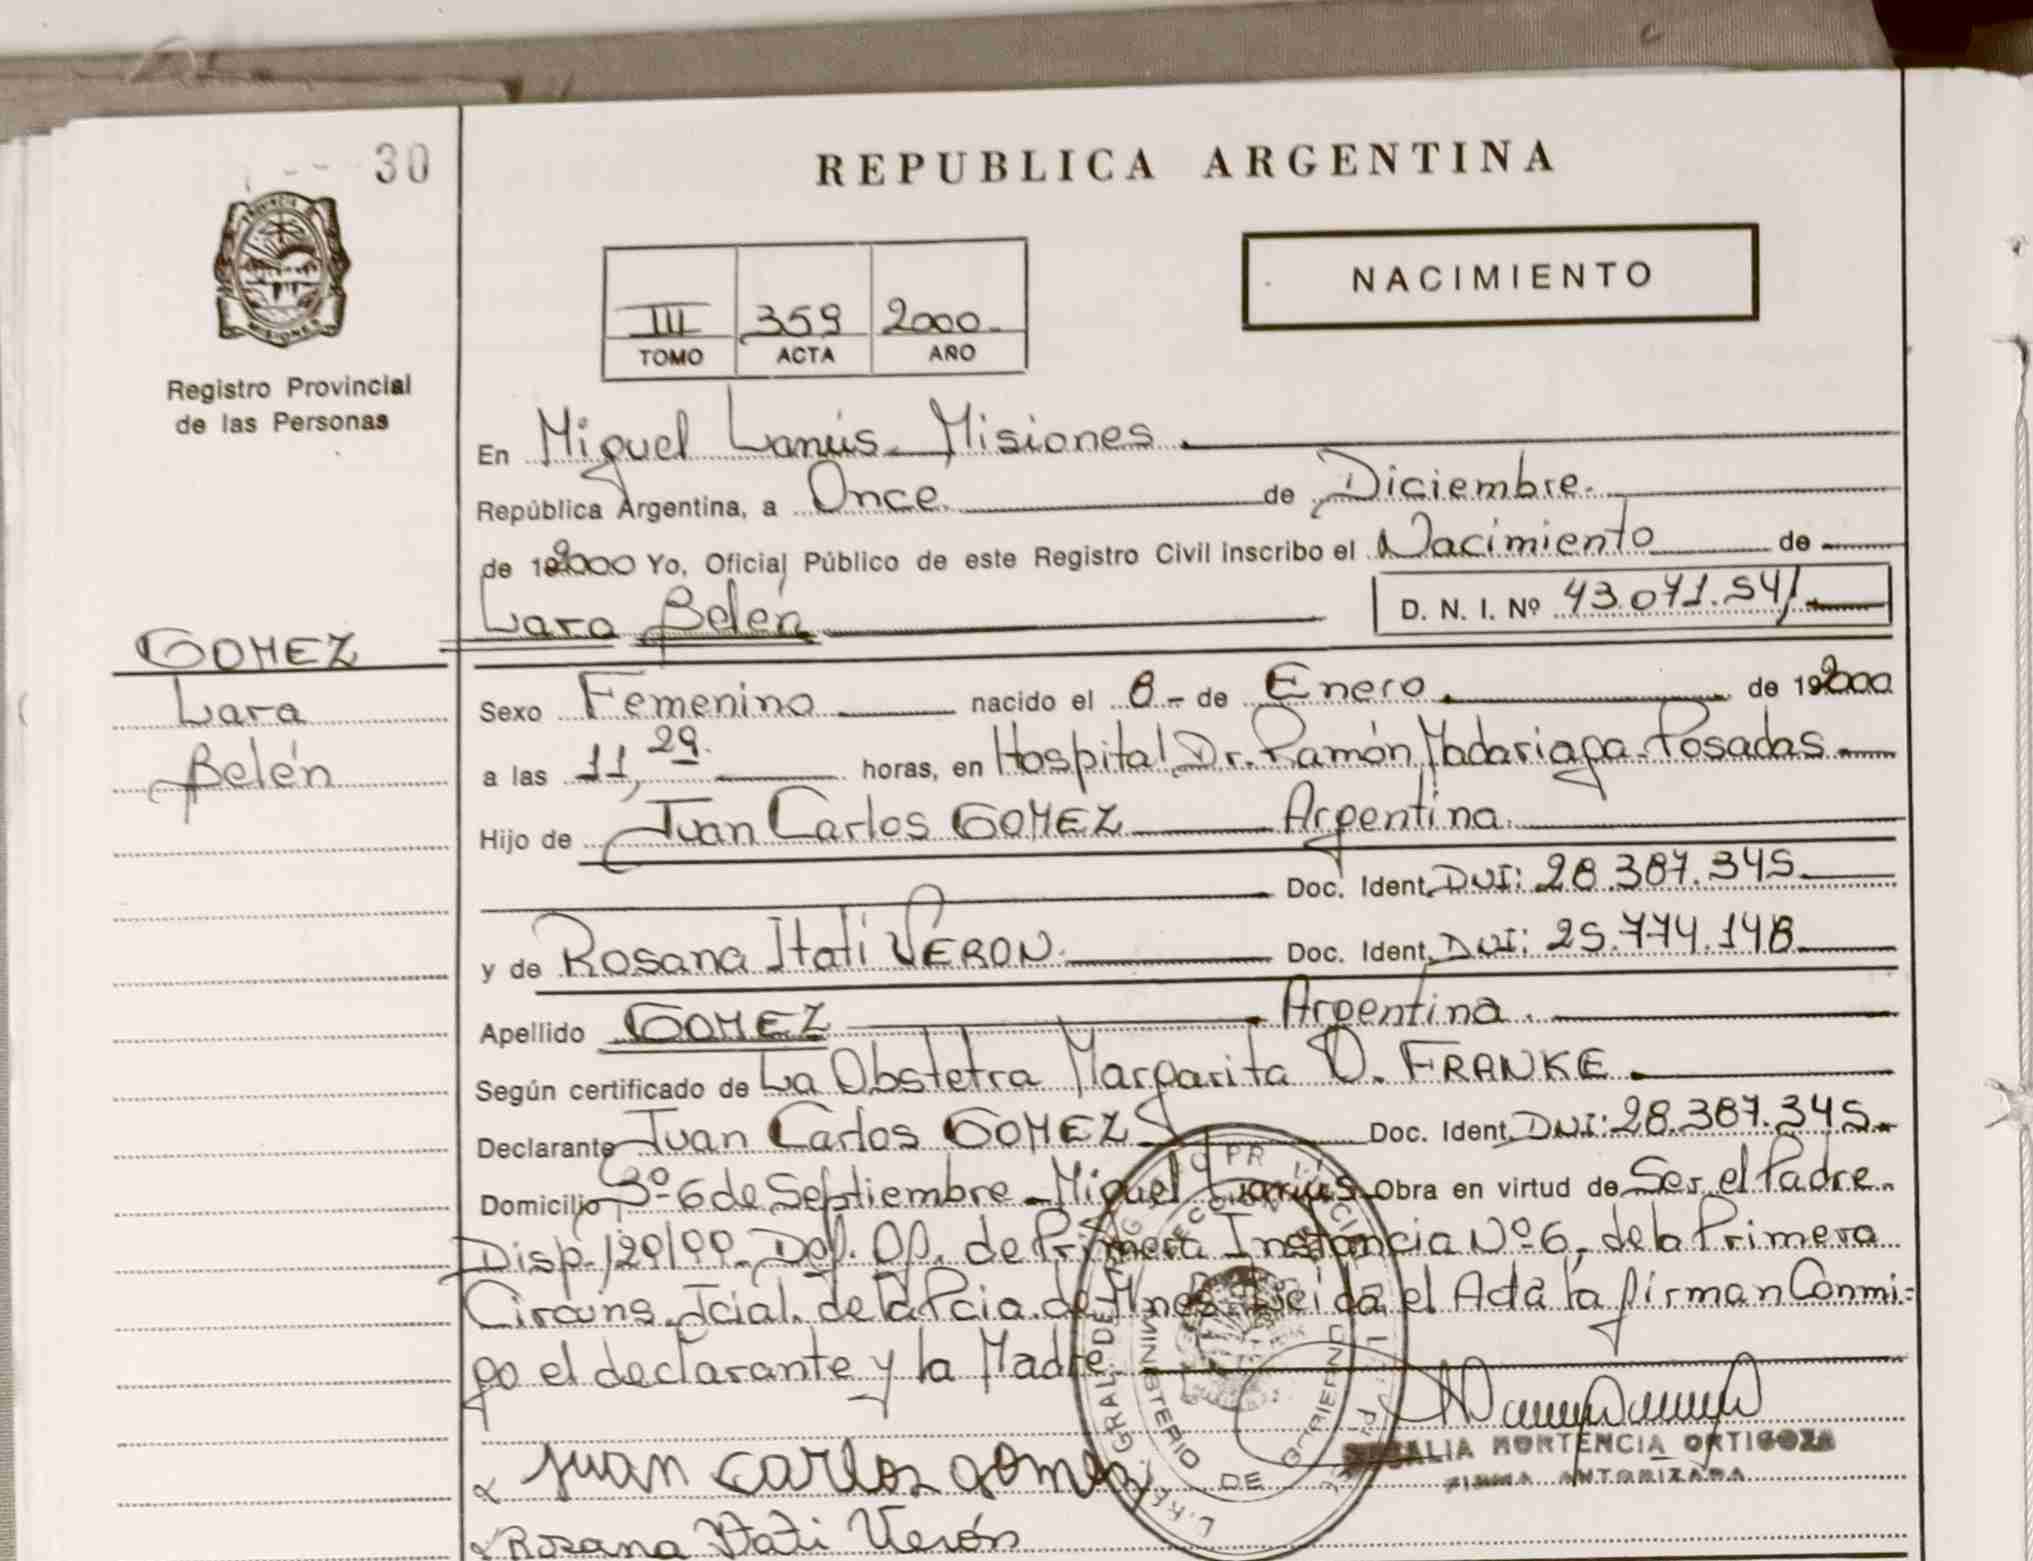 30
REPUBLICA ARGENTINA
PROVINCIA
MISIONES
Registro Provincial
de las Personas
NACIMIENTO
III 359 2000
TOMO ACTA AÑO
En Miguel Lanús - Misiones
República Argentina, a Once de Diciembre.
de 192000 Yo, Oficial Público de este Registro Civil inscribo el Nacimiento de
Lara Belén D. N. I. Nº 43.071.541
GOMEZ
Lara
Belén
Sexo Femenino nacido el 8 - de Enero de 192000
a las 11,29 horas, en Hospital Dr. Ramón Madariaga - Posadas
Hijo de Juan Carlos GOMEZ Argentina
Doc. Ident. DNI: 28.387.345
y de Rosana Itati VERON Doc. Ident. DNI: 25.774.148
Apellido GOMEZ Argentina
Según certificado de La Obstetra Margarita D. FRANKE
Declarante Juan Carlos GOMEZ Doc. Ident. DNI: 28.387.345
Domicilio Bº 6 de Septiembre - Miguel Lanús Obra en virtud de Ser el Padre.
Disp. 129/99 - Def. Of. de Primera Instancia Nº 6, de la Primera
Circuns. Jcial. de la Pcia. de Mnes. Leida el Acta la firman Conmi=
go el declarante y la Madre
MINISTERIO DE GOBIERNO
Juan carlos gomez
HORTENCIA ORTIGOZA
FIRMA AUTORIZADA
Rosana Itati Verón